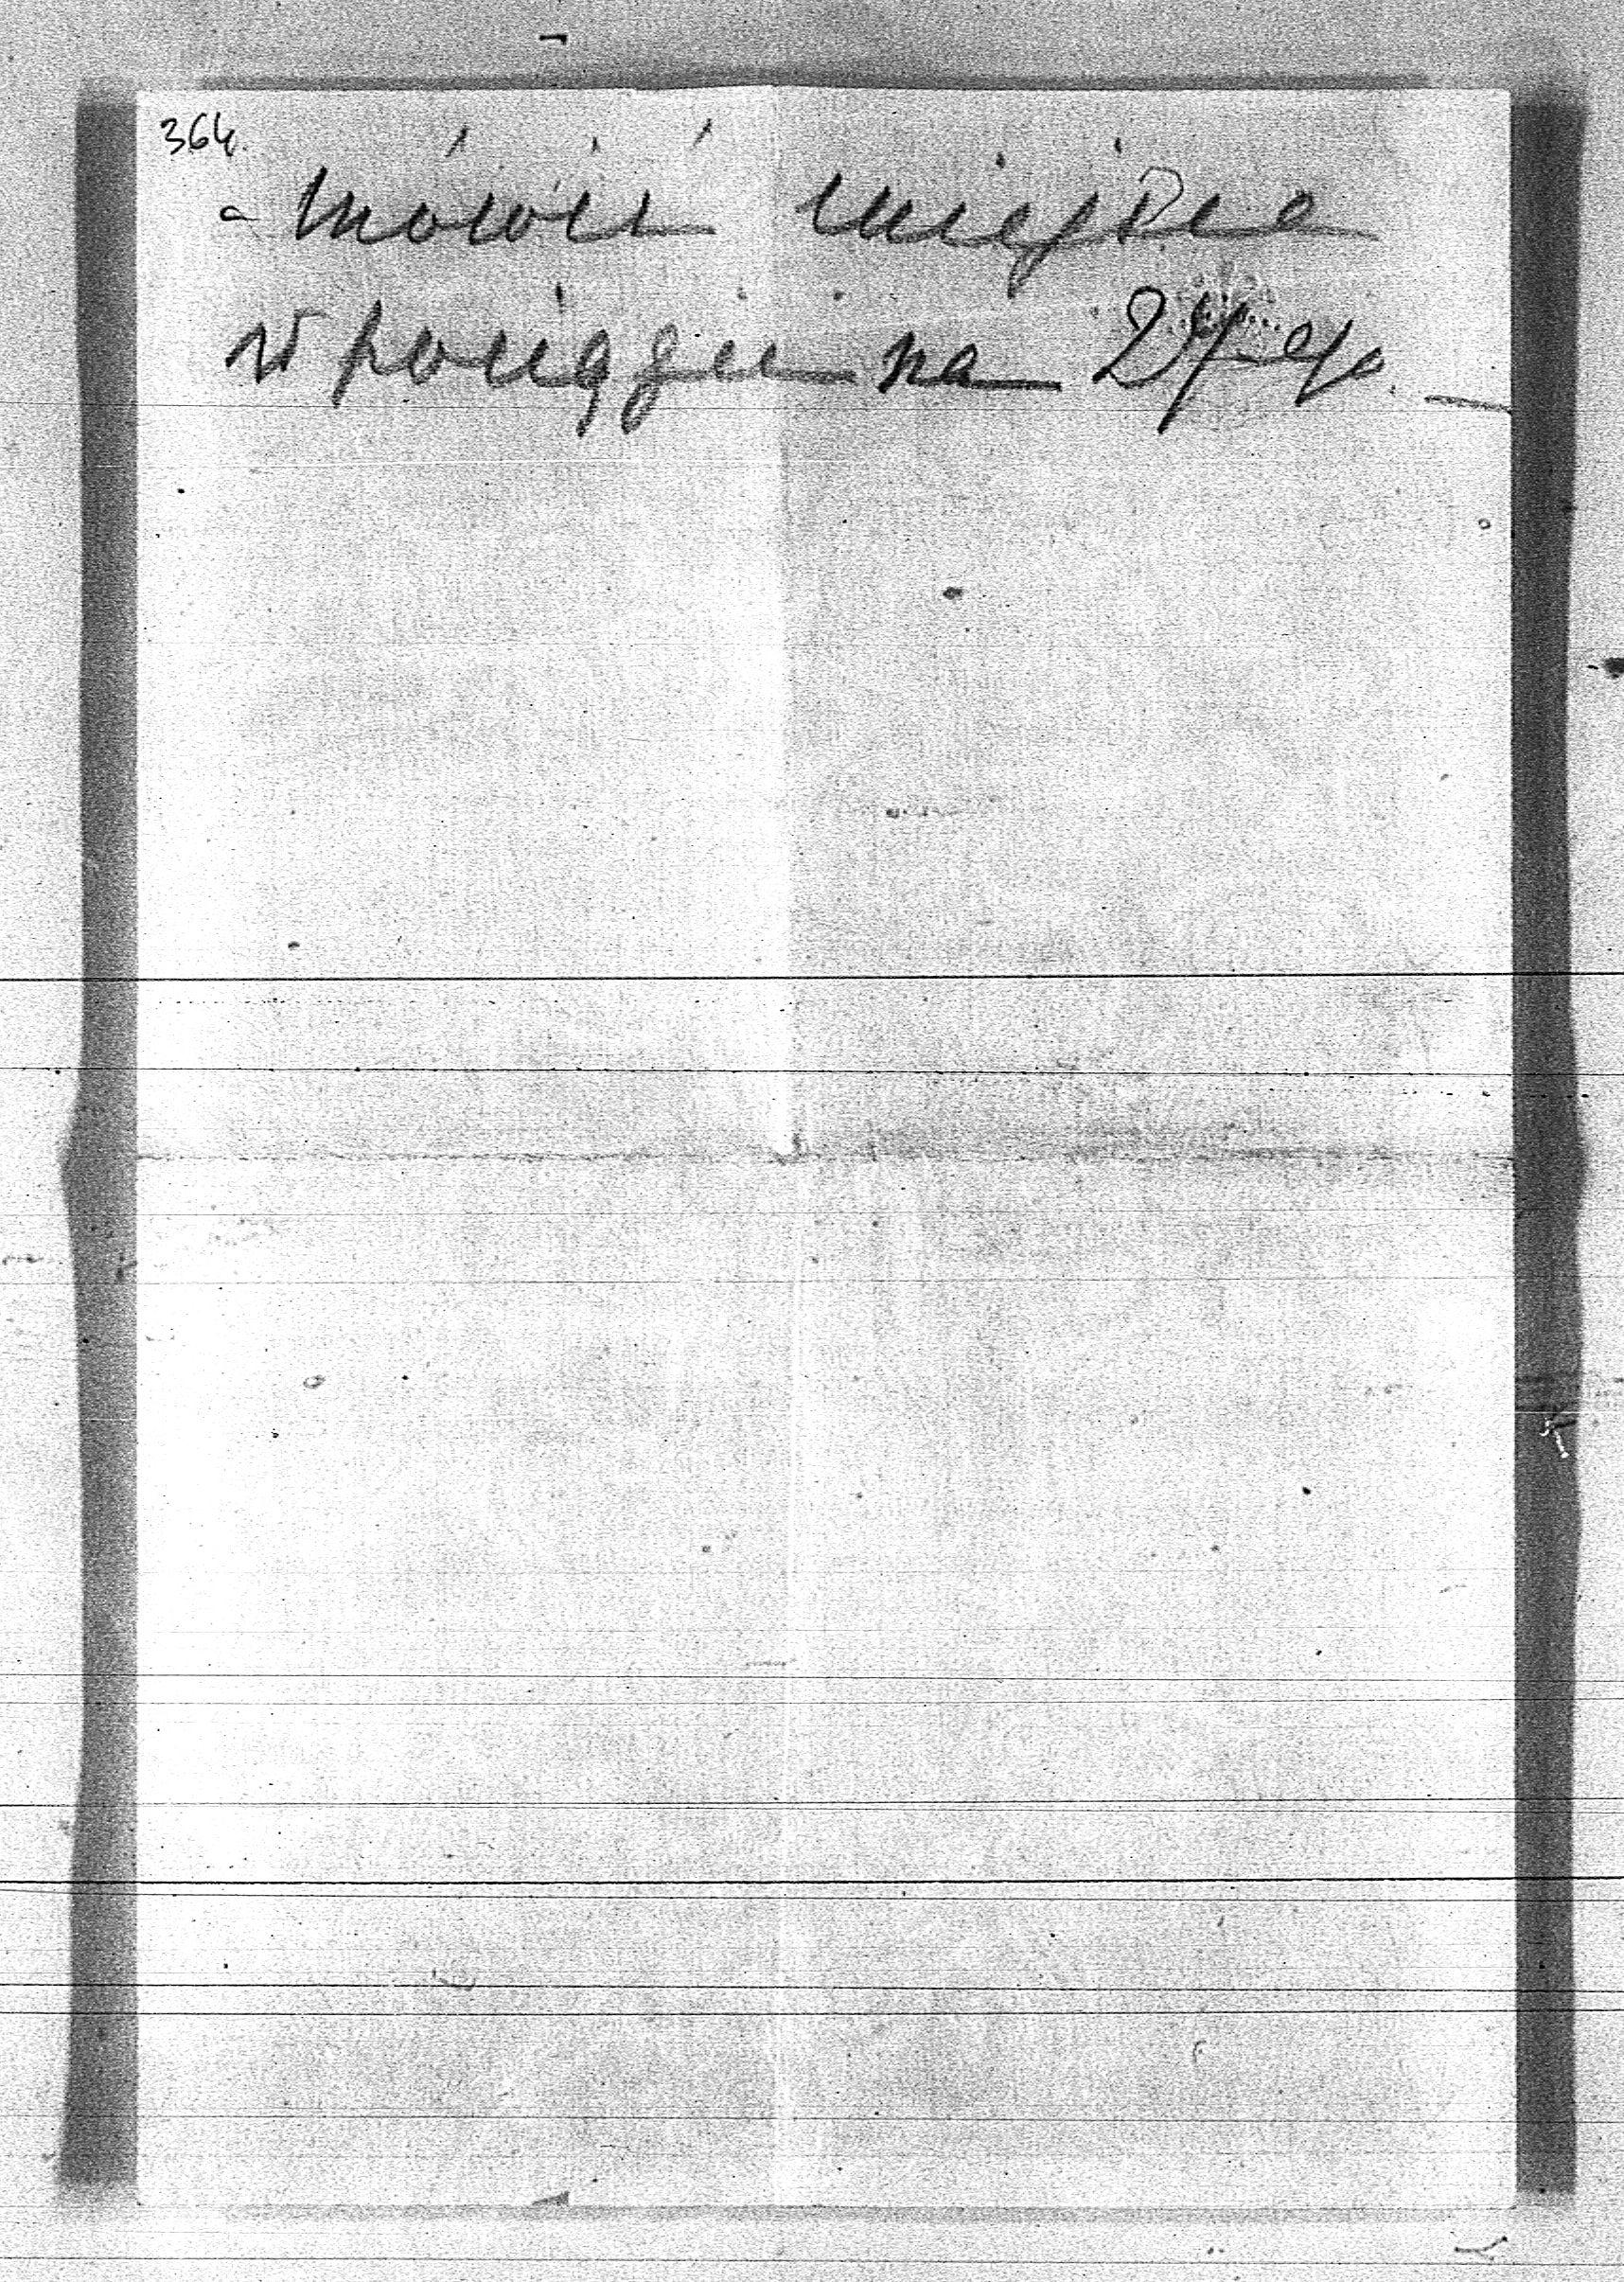 364.
- mówić miejsce
w pociągu na 27 go. —